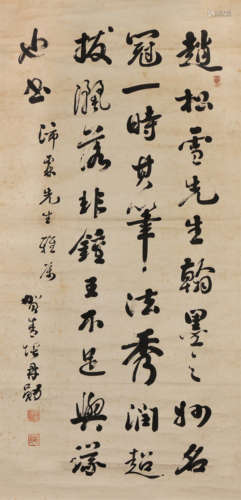 趙松雪先生翰墨之妙名
冠一時其筆法秀潤超
拔飄落非鍾王不足與
也
沛霖先生雅属